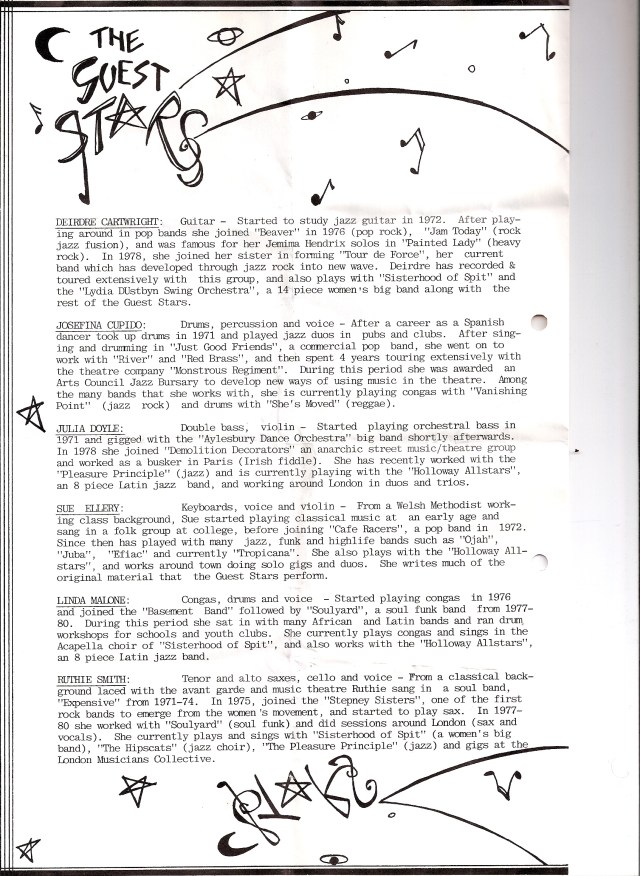 THE
GUEST
STARS
DEIRDRE CARTWRIGHT: Guitar - Started to study jazz guitar in 1972. After play-
ing around in pop bands she joined "Beaver" in 1976 (pop rock), "Jam Today" (rock
jazz fusion), and was famous for her Jemima Hendrix solos in "Painted Lady" (heavy
rock). In 1978, she joined her sister in forming "Tour de Force", her current
band which has developed through jazz rock into new wave. Deirdre has recorded &
toured extensively with this group, and also plays with "Sisterhood of Spit" and
the "Lydia DUstbyn Swing Orchestra", a 14 piece women's big band along with the
rest of the Guest Stars.
JOSEFINA CUPIDO: Drums, percussion and voice - After a career as a Spanish
dancer took up drums in 1971 and played jazz duos in pubs and clubs. After sing-
ing and drumming in "Just Good Friends", a commercial pop band, she went on to
work with "River" and "Red Brass", and then spent 4 years touring extensively with
the theatre company "Monstrous Regiment". During this period she was awarded an
Arts Council Jazz Bursary to develop new ways of using music in the theatre. Among
the many bands that she works with, she is currently playing congas with "Vanishing
Point" (jazz rock) and drums with "She's Moved" (reggae).
JULIA DOYLE: Double bass, violin - Started playing orchestral bass in
1971 and gigged with the "Aylesbury Dance Orchestra" big band shortly afterwards.
In 1978 she joined "Demolition Decorators" an anarchic street music/theatre group
and worked as a busker in Paris (Irish fiddle). She has recently worked with the
"Pleasure Principle" (jazz) and is currently playing with the "Holloway Allstars",
an 8 piece Latin jazz band, and working around London in duos and trios.
SUE ELLERY: Keyboards, voice and violin - From a Welsh Methodist work-
ing class background, Sue started playing classical music at an early age and
sang in a folk group at college, before joining "Cafe Racers", a pop band in 1972.
Since then has played with many jazz, funk and highlife bands such as "Ojah",
"Juba", "Efiac" and currently "Tropicana". She also plays with the "Holloway All-
stars", and works around town doing solo gigs and duos. She writes much of the
original material that the Guest Stars perform.
LINDA MALONE: Congas, drums and voice - Started playing congas in 1976
and joined the "Basement Band" followed by "Soulyard", a soul funk band from 1977-
80. During this period she sat in with many African and Latin bands and ran drum
workshops for schools and youth clubs. She currently plays congas and sings in the
Acapella choir of "Sisterhood of Spit", and also works with the "Holloway Allstars",
an 8 piece Latin jazz band.
RUTHIE SMITH: Tenor and alto saxes, cello and voice - From a classical back-
ground laced with the avant garde and music theatre Ruthie sang in a soul band,
"Expensive" from 1971-74. In 1975, joined the "Stepney Sisters", one of the first
rock bands to emerge from the women's movement, and started to play sax. In 1977-
80 she worked with "Soulyard" (soul funk) and did sessions around London (sax and
vocals). She currently plays and sings with "Sisterhood of Spit" (a women's big
band), "The Hipscats" (jazz choir), "The Pleasure Principle" (jazz) and gigs at the
London Musicians Collective.
STARS